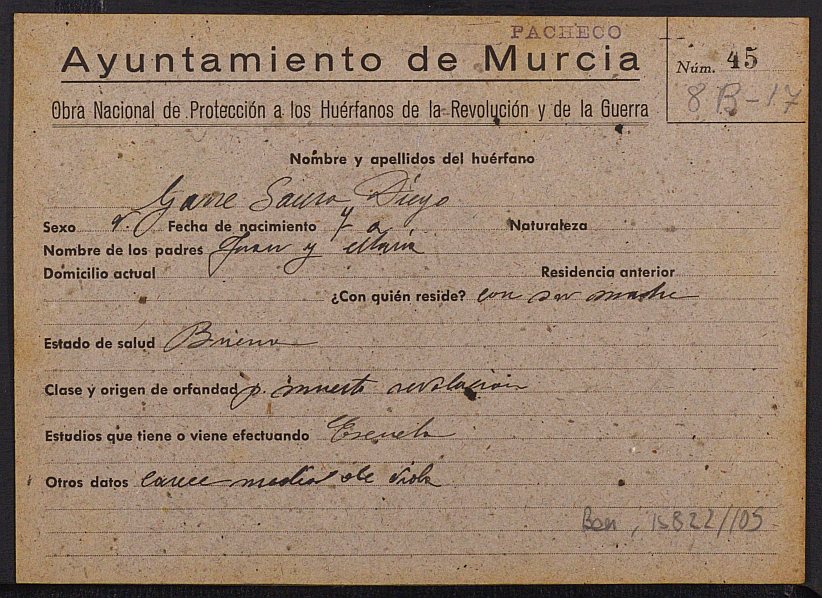 PACHECO
Ayuntamiento de Murcia
Núm. 45
8 B-17
Obra Nacional de Protección a los Huérfanos de la Revolución y de la Guerra
Nombre y apellidos del huérfano
Garre Saura Diego
Sexo v. Fecha de nacimiento 7 a. Naturaleza
Nombre de los padres Juan y María
Domicilio actual Residencia anterior
¿Con quién reside? con su madre
Estado de salud Bueno
Clase y origen de orfandad p. muerto revolución
Estudios que tiene o viene efectuando Escuela
Otros datos carece medios de vida
Ben, 15822/105